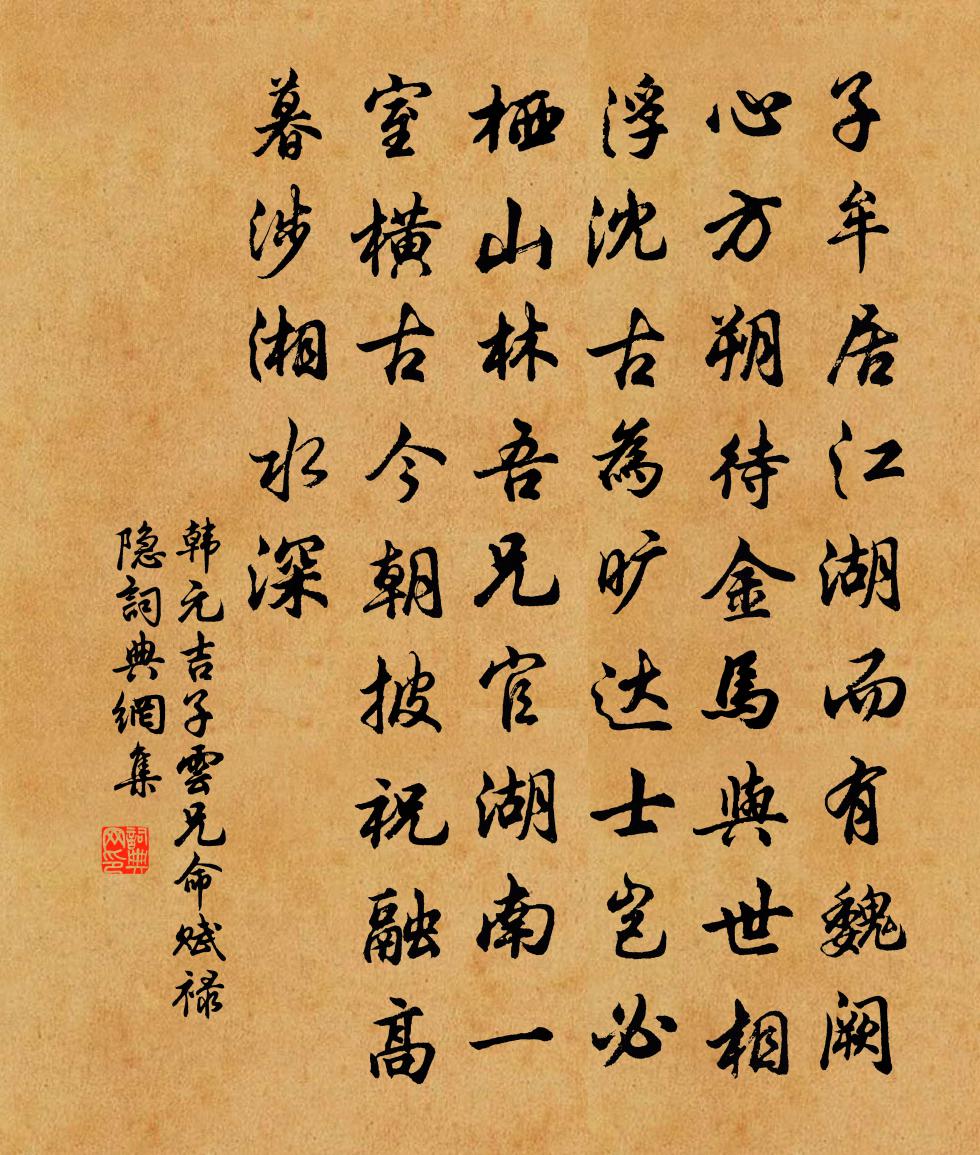 子牟居江湖而有魏阙
心方朔待金馬與世相
浮沈古為旷达士岂必
栖山林吾兄官湖南一
室横古今朝披祝融高
暮涉湘水深
韩元吉子雲兄命赋禄
隐詞典網集
詞典网印